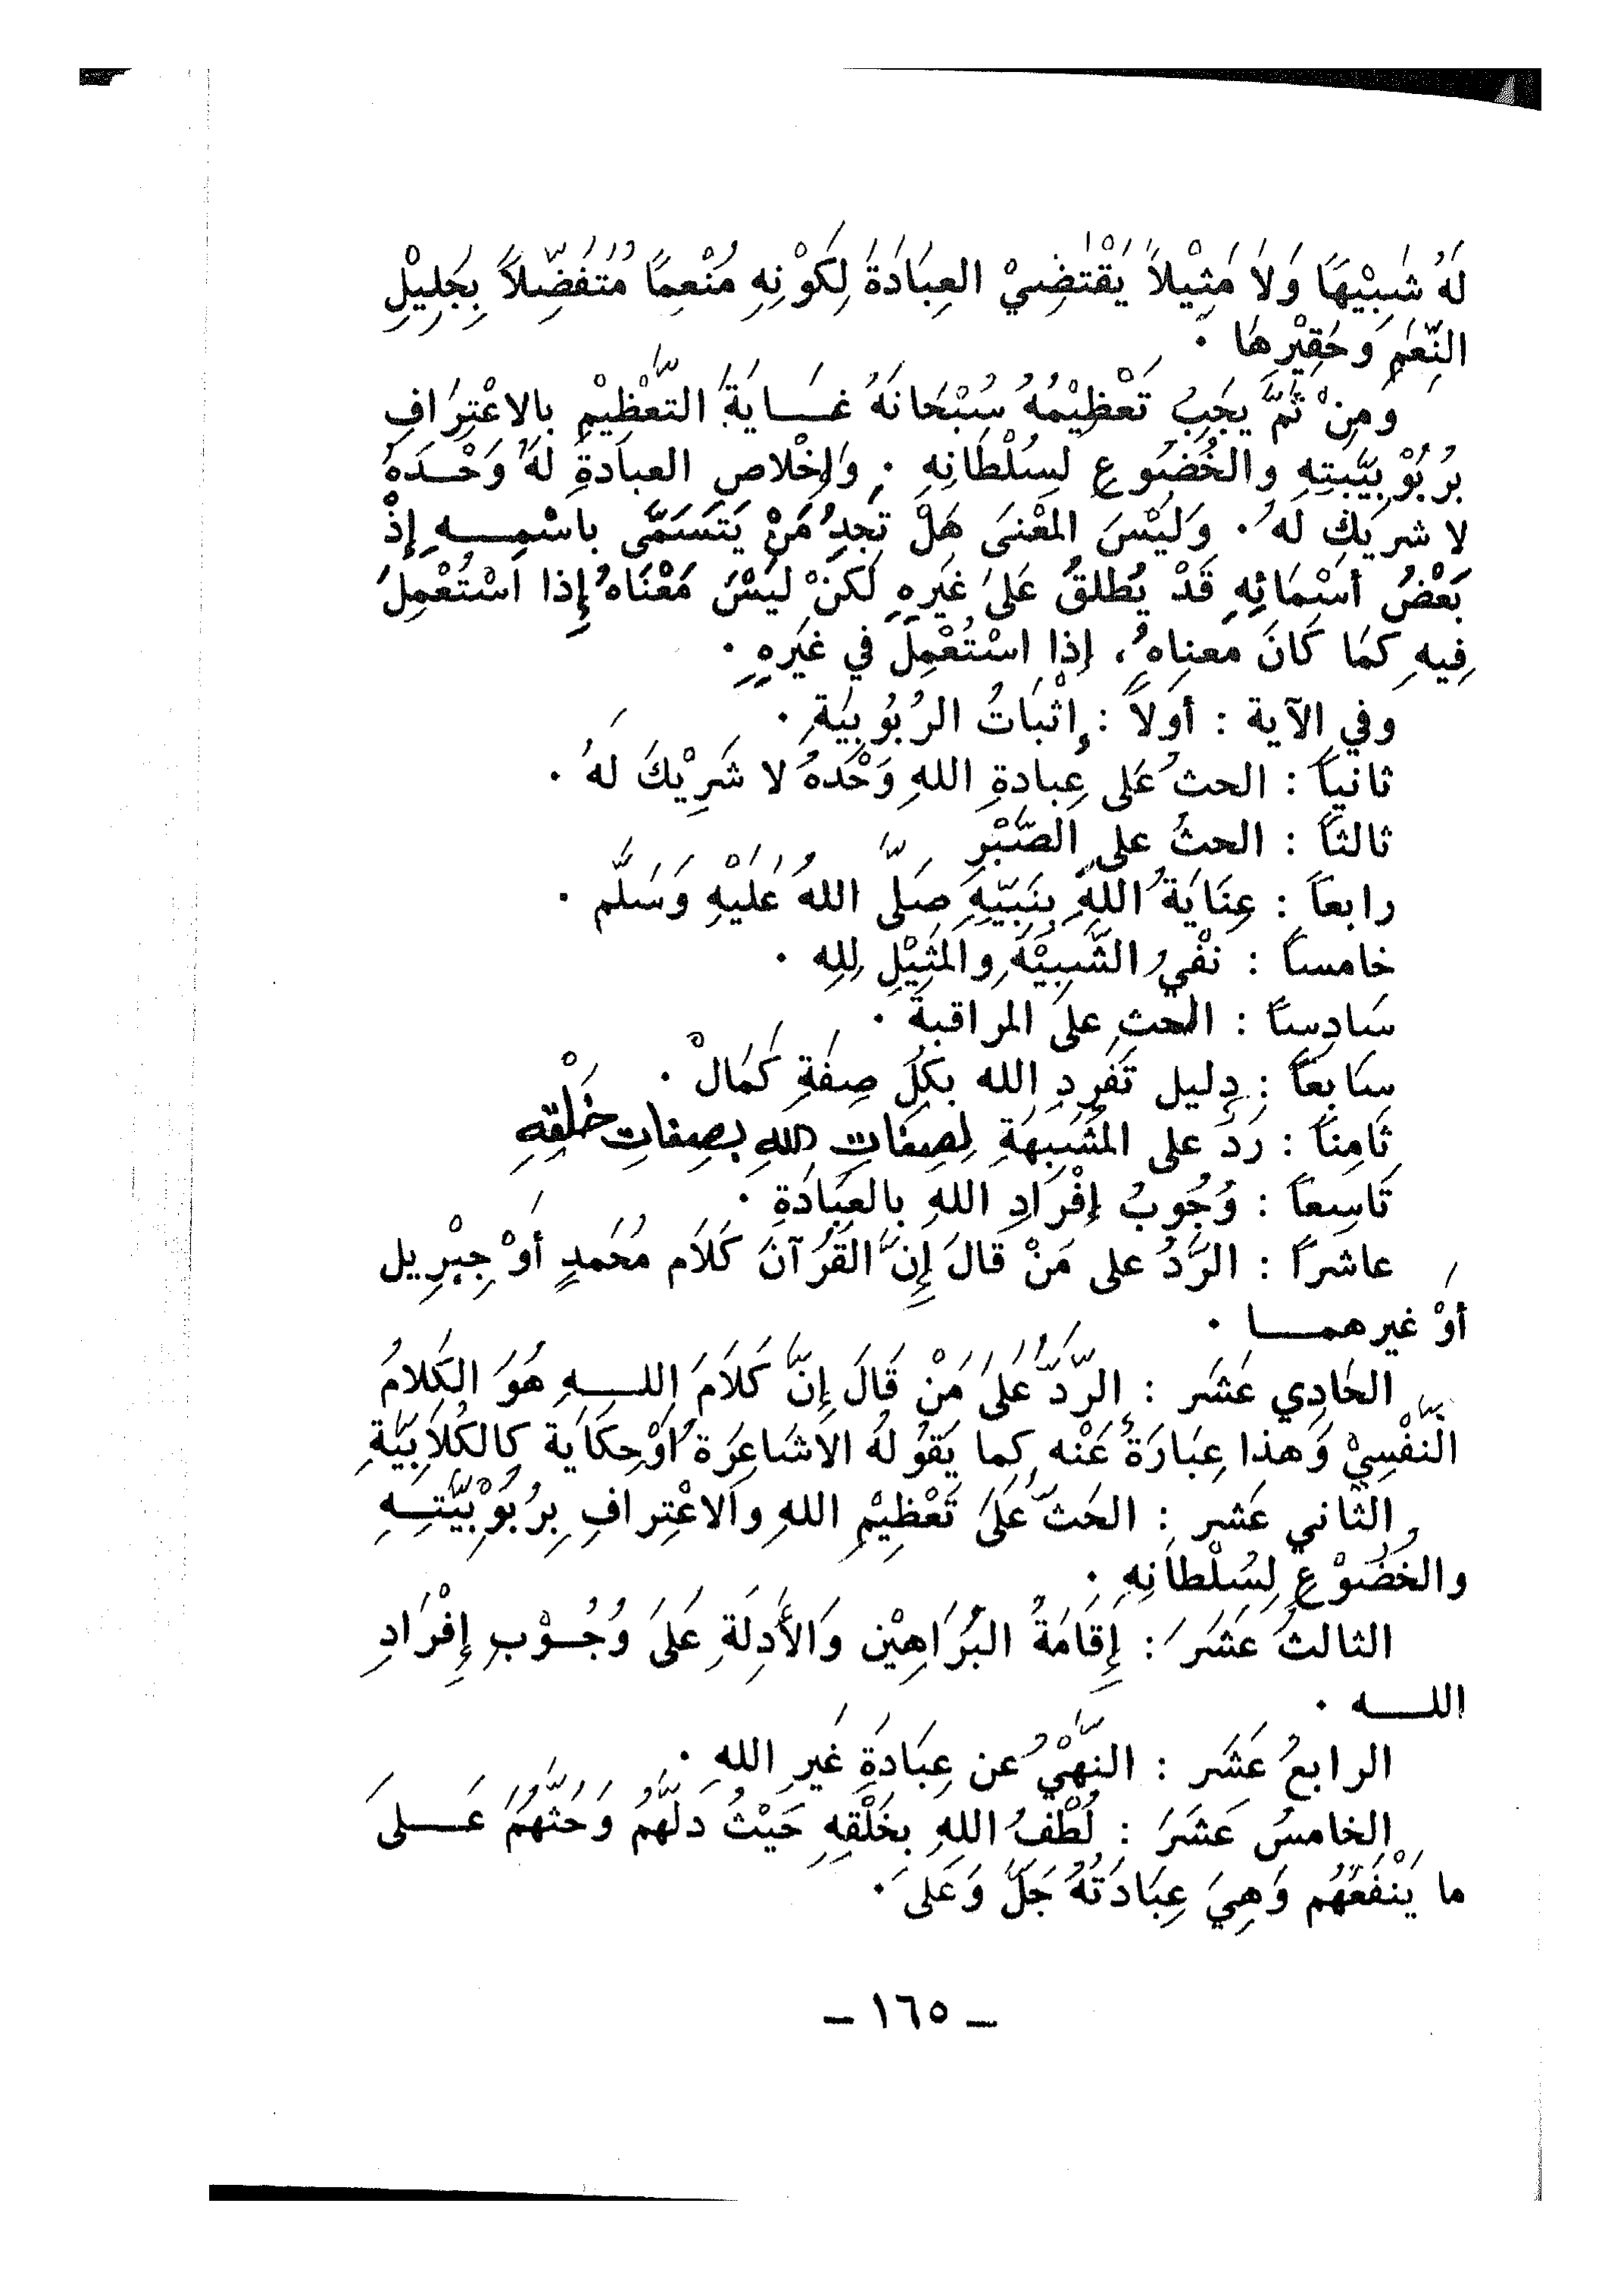 لَهُ شَبِيْهًا وَلاَ مَثِيْلاً يَقْتَضِيْ العِبَادَةَ لِكَوْنِهِ مُنْعِمًا مُتَفَضِّلاً بِجَلِيْلِ
النِّعَمِ وَحَقِيْرِهَا .
وَمِنْ ثَمَّ يجَبِ تَعْظِيْمُهُ سُبْحَانَهُ غَـــايَةَ التَّعْظِيْمِ بالاعْتِرَافِ
بِرُبُوْبِيَّتِهِ والخُضُوعِ لسُلْطَانِهِ . وَإخْلاصِ العبادةِ لَهُ وَحْـدَهُ
لا شريكَ لَهُ . وَلَيْسَ المَعْنىَ هَلْ تَجِدُ مَنْ يَتَسَمَّى باسْمِـــهِ إذْ
بَعْضُ أسْمَائِهِ قَدْ يُطلقُ عَلىَ غَيرِهِ لَكنْ ليَسْ مَعْنَاهُ إذا اسْتُعْمِلَ
فِيهِ كمَا كَانَ مَعناهُ، إذا اسْتُعْمِلَ في غَيرِهِ .
وفي الآية : أولاً : إثْبَاتُ الرُبُوبِيَةِ .
ثانياً : الحثُ عَلى عِبادةِ اللهِ وَحْدَهُ لا شَرِيْكَ لَهُ .
ثالثاً : الحثُ على الصَّبْرِ
رابعاً : عِنَايَةُ اللهِ بِنَبِيّهِ صَلَّى اللهُ عَلَيْهِ وَسَلَّم .
خامساً : نَفْيُ الشَّبِيْهِ والمَثِيْلِ لِلهِ .
سَادِساً : الحث على المراقبة .
سَابِعاً : دليل تَفَردِ الله بكلَ صِفَةِ كَمَالْ .
ثَامِناً : رَدَ على المشَبِهَةِ لِصِفَاتِ اللهِ بصِفاتِ خَلْقِهِ
تَاسِعاً : وُجُوبُ إفْرَادِ اللهِ بالعِبَادَةِ .
عاشراً : الرَّدُ على مَنْ قالَ إنَّ القُرْآنَ كَلاَم مُحَمدٍ أوْ جِبْرِيل
أوْ غيرهمـــا .
الحَادِي عَشَر : الرَّدُّ عَلىَ مَنْ قَالَ إنَّ كَلاَمَ اللـــهِ هُوَ الكَلامُ
النَّفْسِيْ وَهذا عِبَارَةٌ عَنْه كما يَقُولهُ الاشَاعِرَةُ أوْحِكَاية كالكُلاَبِيَّةِ
الثَاني عَشر : الحَثُّ عَلىَ تَعْظِيْمِ اللهِ والاعْتِرافِ بِرُبُوْبِيَّتـِـهِ
والخُضُوْعِ لِسُلْطانِهِ .
الثالثُ عَشَرَ : إقَامَةُ البُرَاهِيْن وَالأَدِلَةِ عَلىَ وُجُــوْبِ إفْرَادِ
اللـــه .
الرابعُ عَشَر : النَّهْيُ عن عِبَادَةِ غَيرِ اللهِ .
الخامسُ عَشَرَ : لُطْفُ اللهِ بخَلْقِهِ حَيْثُ دَلَّهُمُ وَحَثَّهُمَ عَـــلىَ
ما يَنْفَعُهُم وَهِيَ عِبَادَتَهُ جَلَّ وَعَلىَ .
ــ ١٦٥ ــ